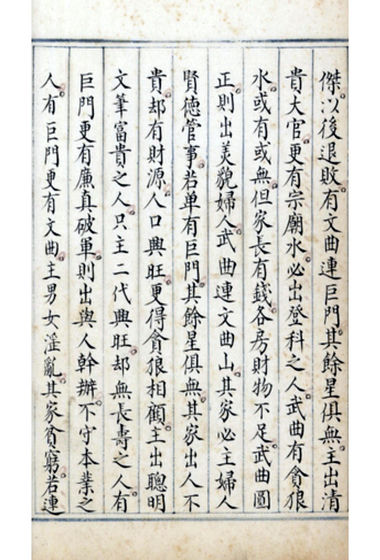 傑以後退敗有文曲連巨門其餘星俱無主出清
貴大官更有宗廟水必出登科之人武曲有貪狼
水或有或無但家長有錢各房財物不足武曲圖
正則出美貌婦人武曲連文曲山其家必主婦人
賢德管事若单有巨門其餘星俱無其家出人不
貴却有財源人口興旺更得貪狼相顧主出聰明
文筆富貴之人只主二代興旺却無長壽之人有
巨門更有廉真破軍則出與人幹辦不守本業之
人有巨門更有文曲主男女淫亂其家貧窮若連